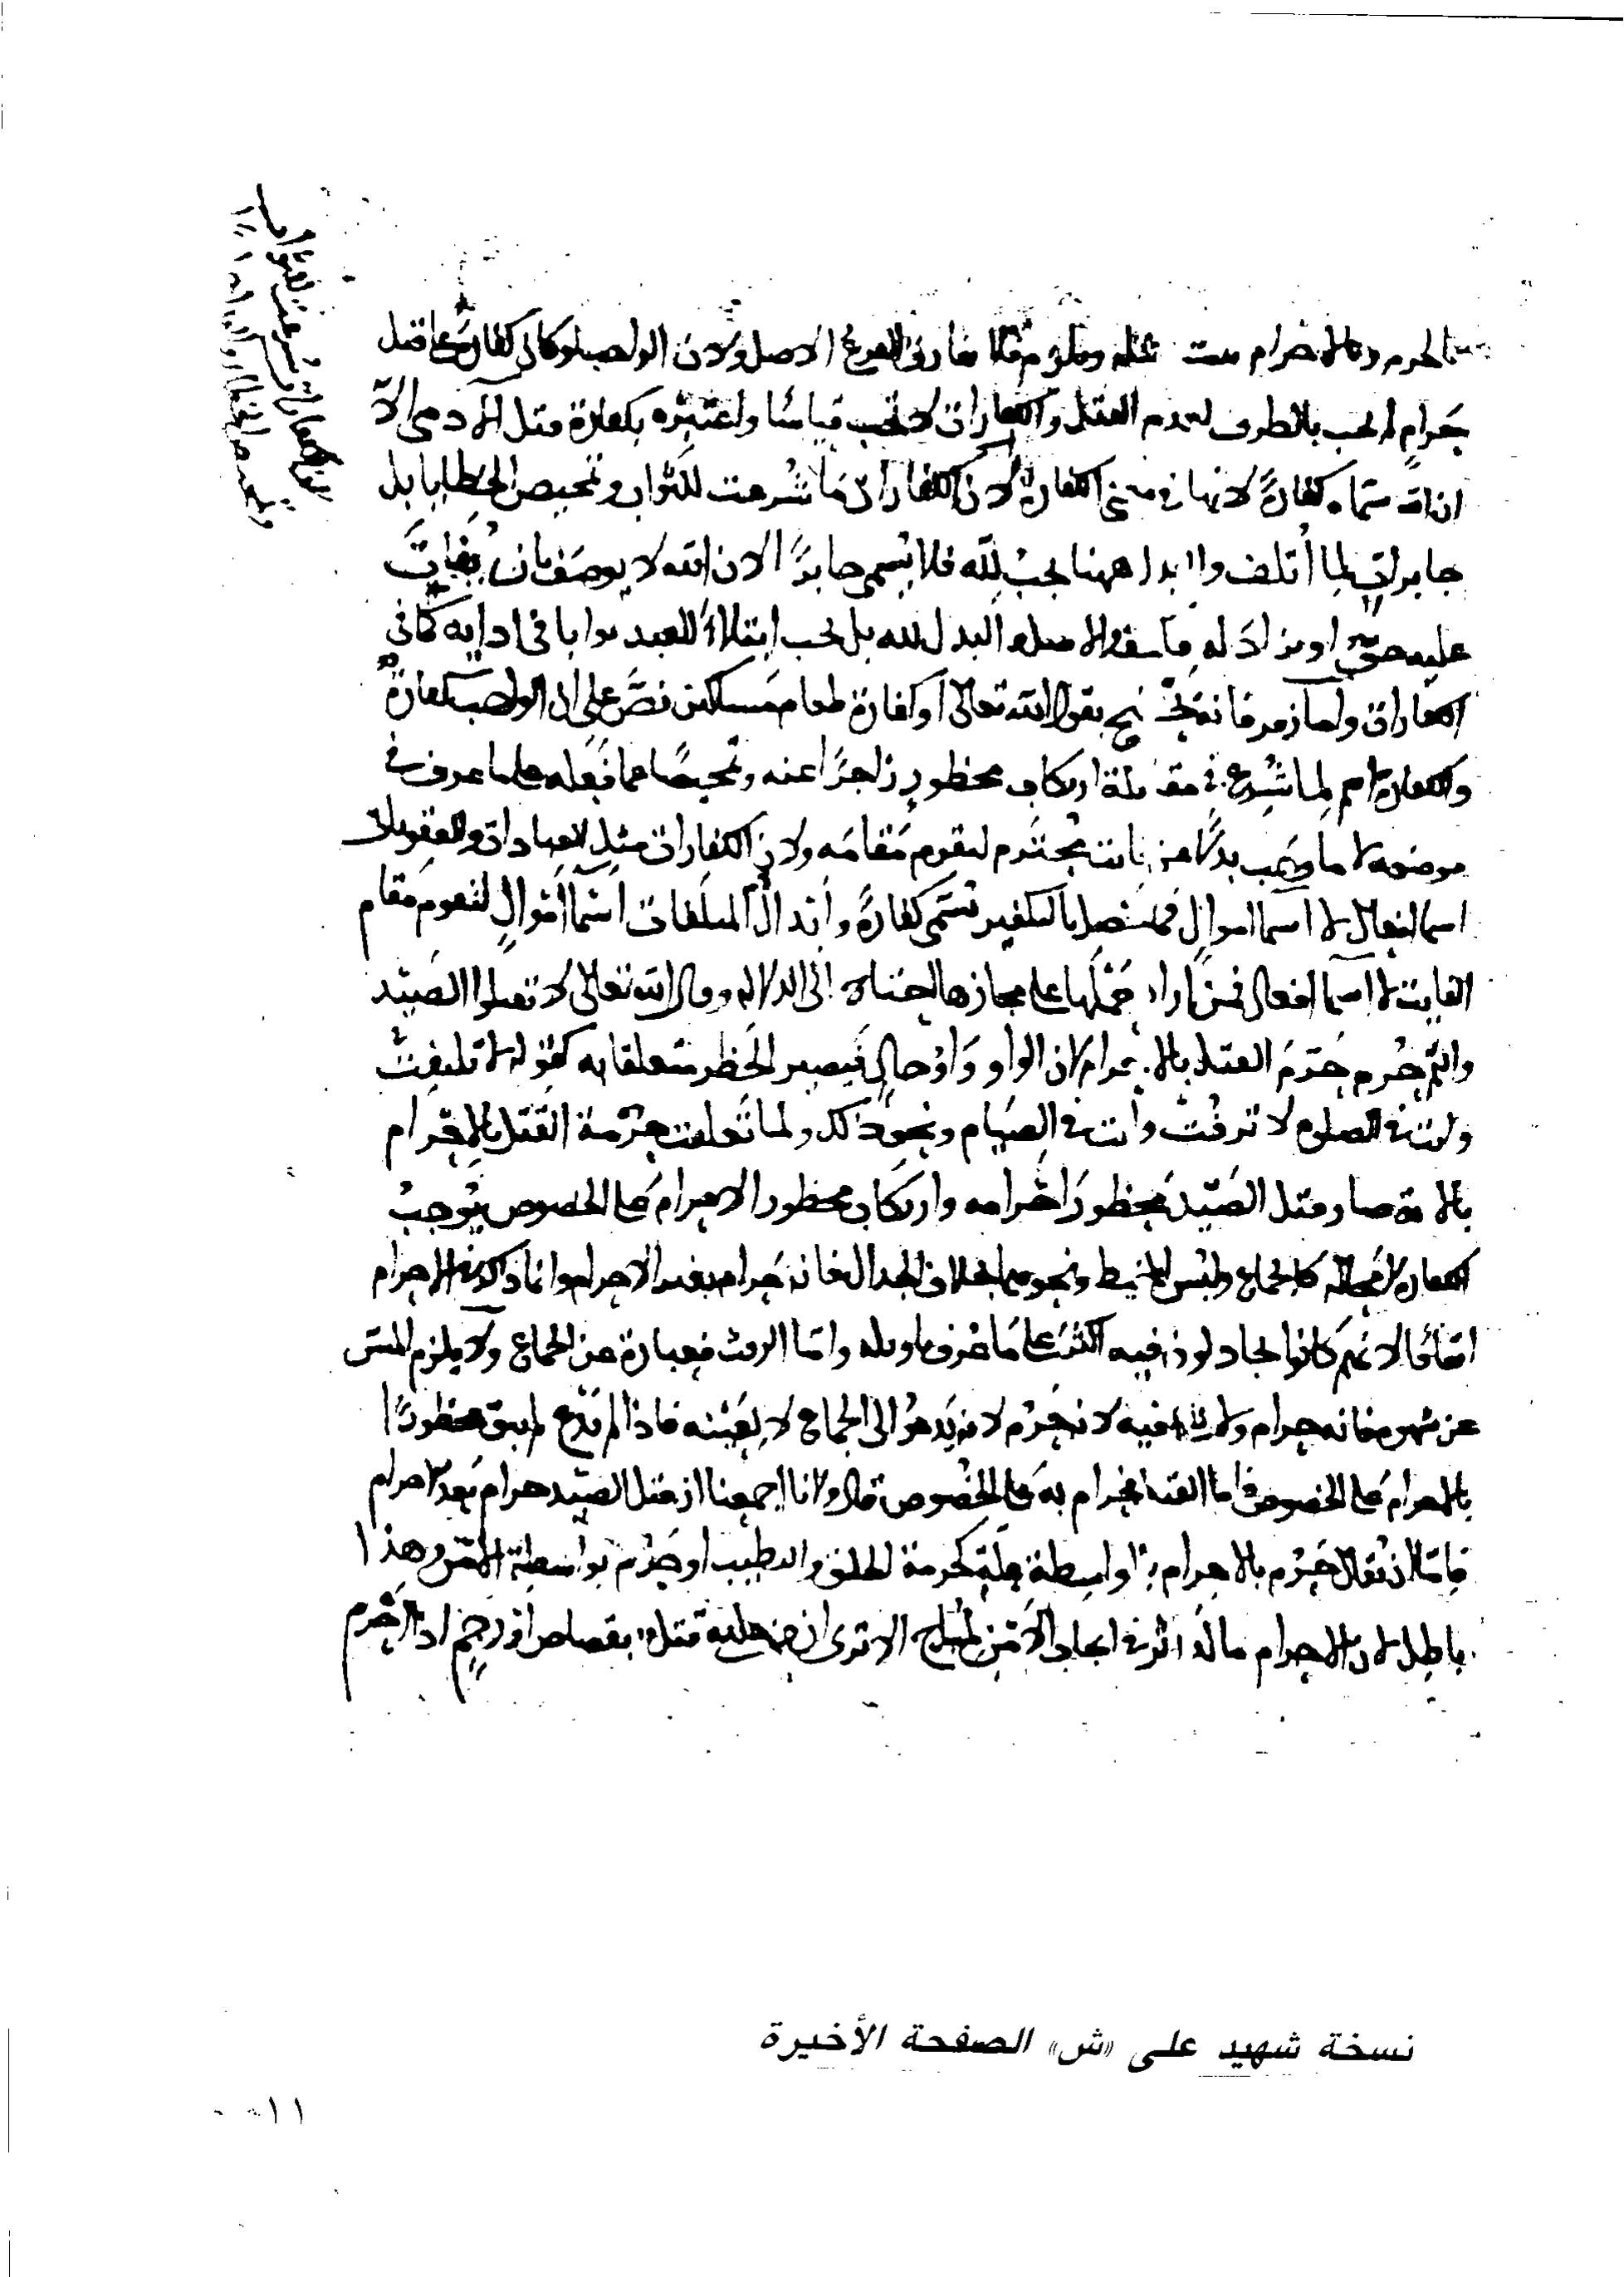 بالحرم وبالاحرام مثله الاصل ولان الواجب لو كان كفارة على قتل
حرام لم يجب بالطرف لعدم القتل والكفارات لا تجب قياسًا واعتبره بكفارة قتل الآدمي الا
ان الله سماه كفارةً لانها في معنى الكفارة لان الكفارات ما شرعت للثواب وتمحيص الخطايا بل
جابرات لما أتلف والا بدل ههنا يجب لله فلا يسمى جابرًا الا ان الله لا يوصف بان يفات
عليه حق او يزاد له البدل لله بل يجب ابتلاءً للعبد ثوابا في ادايه كما في
الكفارات واما زفر فانه يحتج بقول الله تعالى أو كفارة طعام مساكين نصَّ على ان الواجب كفارة
والكفارة اسم لما شُرع في مقابلة ارتكاب محظورٍ زاجرًا عنه وتمحيصًا عما فعله على ما عرف في
موضعه لا ما وجب بدلًا عن فايت محترم ليقوم مقامه ولان الكفارات مثل العبادات والعقوبات
اسما افعال لا اسما اموالٍ فما يحصل بالتكفير تسمى كفارةً وابدال المتلفات اسما اموالٍ لتقوم مقام
الفايت لا اسما افعال فمن اراد حملها على مجازها احتاج الى الدلالة وقال الله تعالى لا تقتلوا الصيد
وانتم حرم حرّم القتل بالاحرام لان الواو واو حالٍ فيصير الحظر متعلقا به كقوله لا تلتفت
وانت في الصلوة لا ترفث وأنت في الصيام ونحو ذلك ولما تعلقت حرمة القتل بالاحرام
بالاية صار قتل الصيد محظور احرامه وارتكاب محظور الاحرام على الخصوص يوجب
الكفارة لا محالة كالجماع ولبس المخيط ونحوهما بخلاف الجدال فانه حرام بغير الاحرام وانما ذكره في الاحرام
اتفاقًا لانهم كانوا يجادلون فيه اكثر على ما عرف تاويله واما الرفث فعبارة عن الجماع ولا يلزم المس
عن شهوة فانه حرام ولا كفارة فيه لانه حرم لانه يدعو الى الجماع لا بعينه فاذا لم يدع لم يبق محظورًا
بالاحرام على الخصوص فاما القتل فحرام به على الخصوص قال ولانا اجمعنا ان قتل الصيد حرام بعد الاحرام
فاما ان نقول حرم بالاحرام بلا واسطة علة كحرمة الحلق والتطيب او حرم بواسطة الامن وهذا
باطل لان الاحرام ما له اثر في ايجاب الأمن لمباح الا ترى ان من عليه قتل بقصاص أو رجم اذا احرم
نسخة شهيد على «ش» الصفحة الأخيرة